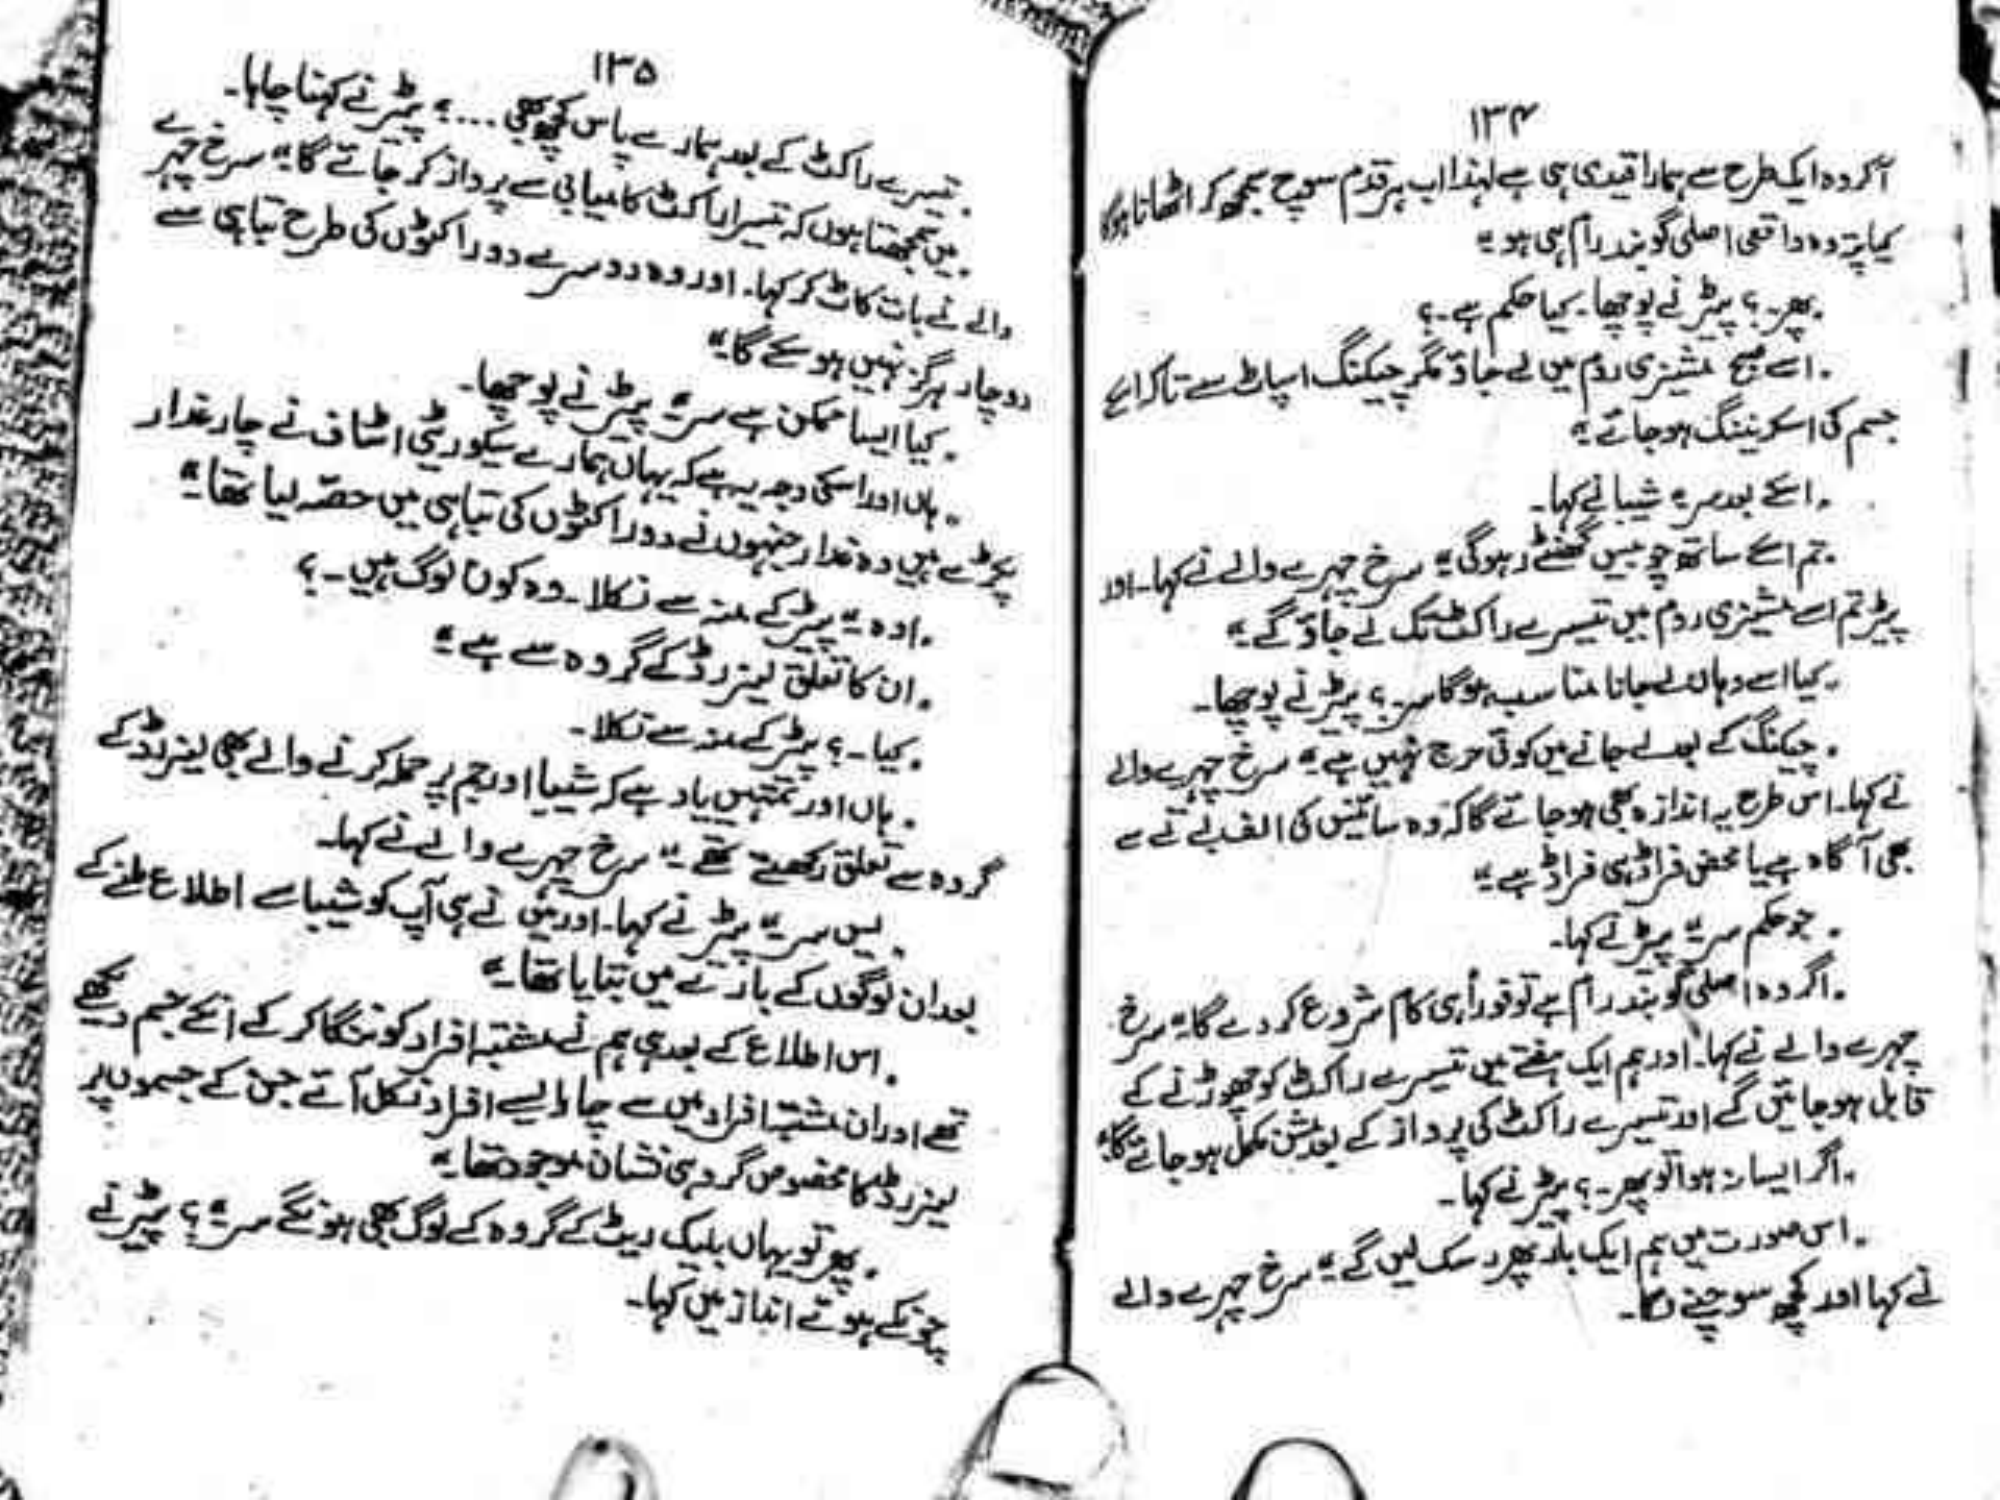 ۱۳۴
آکر وہ ایک طرح سے ہمارا قیدی ہی ہے لہٰذا اب ہر قدم سوچ سمجھ کر اٹھانا ہوگا
کیا پتہ وہ واقعی اصلی گوبند رام ہی ہو۔"
"پھر۔؟ پیٹر نے پوچھا۔ کیا حکم ہے۔؟
"اسے صبح مشینری روم میں لے جاؤ مگر چیکنگ اسپاٹ سے تاکہ اسکے
جسم کی اسکریننگ ہو جائے۔"
"اسکے بعد سر۔" شیبا نے کہا۔
"تم اسکے ساتھ چوبیس گھنٹے رہو گی۔" سرخ چہرے والے نے کہا۔ اور
پیٹر تم اسے مشینری روم میں تیسرے راکٹ تک لے جاؤ گے۔"
"کیا اسے وہاں لیجانا مناسب ہوگا سر۔؟ پیٹر نے پوچھا۔
"چیکنگ کے بعد لے جانے میں کوئی حرج نہیں ہے۔" سرخ چہرے والے
نے کہا۔ اس طرح یہ اندازہ بھی ہو جائے گا کہ وہ سائنس کی الف بے تے سے
بھی آگاہ ہے یا محض فراڈ ہی فراڈ ہے۔"
"جو حکم سر۔" پیٹر نے کہا۔
"اگر وہ اصلی گوبند رام ہے تو فوراً ہی کام شروع کر دے گا۔" سرخ
چہرے والے نے کہا۔ اور ہم ایک ہفتے میں تیسرے راکٹ کو چھوڑنے کے
قابل ہو جائیں گے اور تیسرے راکٹ کی پرواز کے بعد مشن مکمل ہو جائے گا۔"
"اگر ایسا نہ ہوا تو پھر۔؟ پیٹر نے کہا۔
"اس صورت میں ہم ایک بار پھر رسک لیں گے۔" سرخ چہرے والے
نے کہا اور کچھ سوچنے لگا۔
۱۳۵
"تیسرے راکٹ کے بعد ہمارے پاس کچھ بھی ...۔" پیٹر نے کہنا چاہا۔
"میں سمجھتا ہوں کہ تیسرا راکٹ کامیابی سے پرواز کر جائے گا۔" سرخ چہرے
والے نے بات کاٹ کر کہا۔ اور وہ دوسرے دو راکٹوں کی طرح تباہی سے
دوچار ہرگز نہیں ہو سکے گا۔"
"کیا ایسا ممکن ہے سر۔" پیٹر نے پوچھا۔
"ہاں اور اسکی وجہ یہ ہے کہ یہاں ہمارے سیکوریٹی اسٹاف نے چار غدار
پکڑے ہیں وہ غدار جنہوں نے دو راکٹوں کی تباہی میں حصّہ لیا تھا۔"
"اوہ۔" پیٹر کے منہ سے نکلا۔ وہ کون لوگ ہیں۔؟
"ان کا تعلق لیزرڈ کے گروہ سے ہے۔"
"کیا۔؟ پیٹر کے منہ سے نکلا۔
"ہاں اور تمہیں یاد ہے کہ شیبا اور جیم پر حملہ کرنے والے بھی لیزرڈ کے
گروہ سے تعلق رکھتے تھے۔" سرخ چہرے والے نے کہا۔
"یس سر۔" پیٹر نے کہا۔ اور میں نے ہی آپ کو شیبا سے اطلاع ملنے کے
بعد ان لوگوں کے بارے میں بتایا تھا۔"
"اس اطلاع کے بعد ہی ہم نے مشتبہ افراد کو ننگا کر کے انکے جسم دیکھے
تھے اور ان مشتبہ افراد میں سے چار ایسے افراد نکل آئے جن کے جسموں پر
لیزرڈ کا مخصوص گروہی نشان موجود تھا۔"
"پھر تو یہاں بلیک ریٹ کے گروہ کے لوگ بھی ہونگے سر۔"؟ پیٹر نے
چونکے ہوئے انداز میں کہا۔